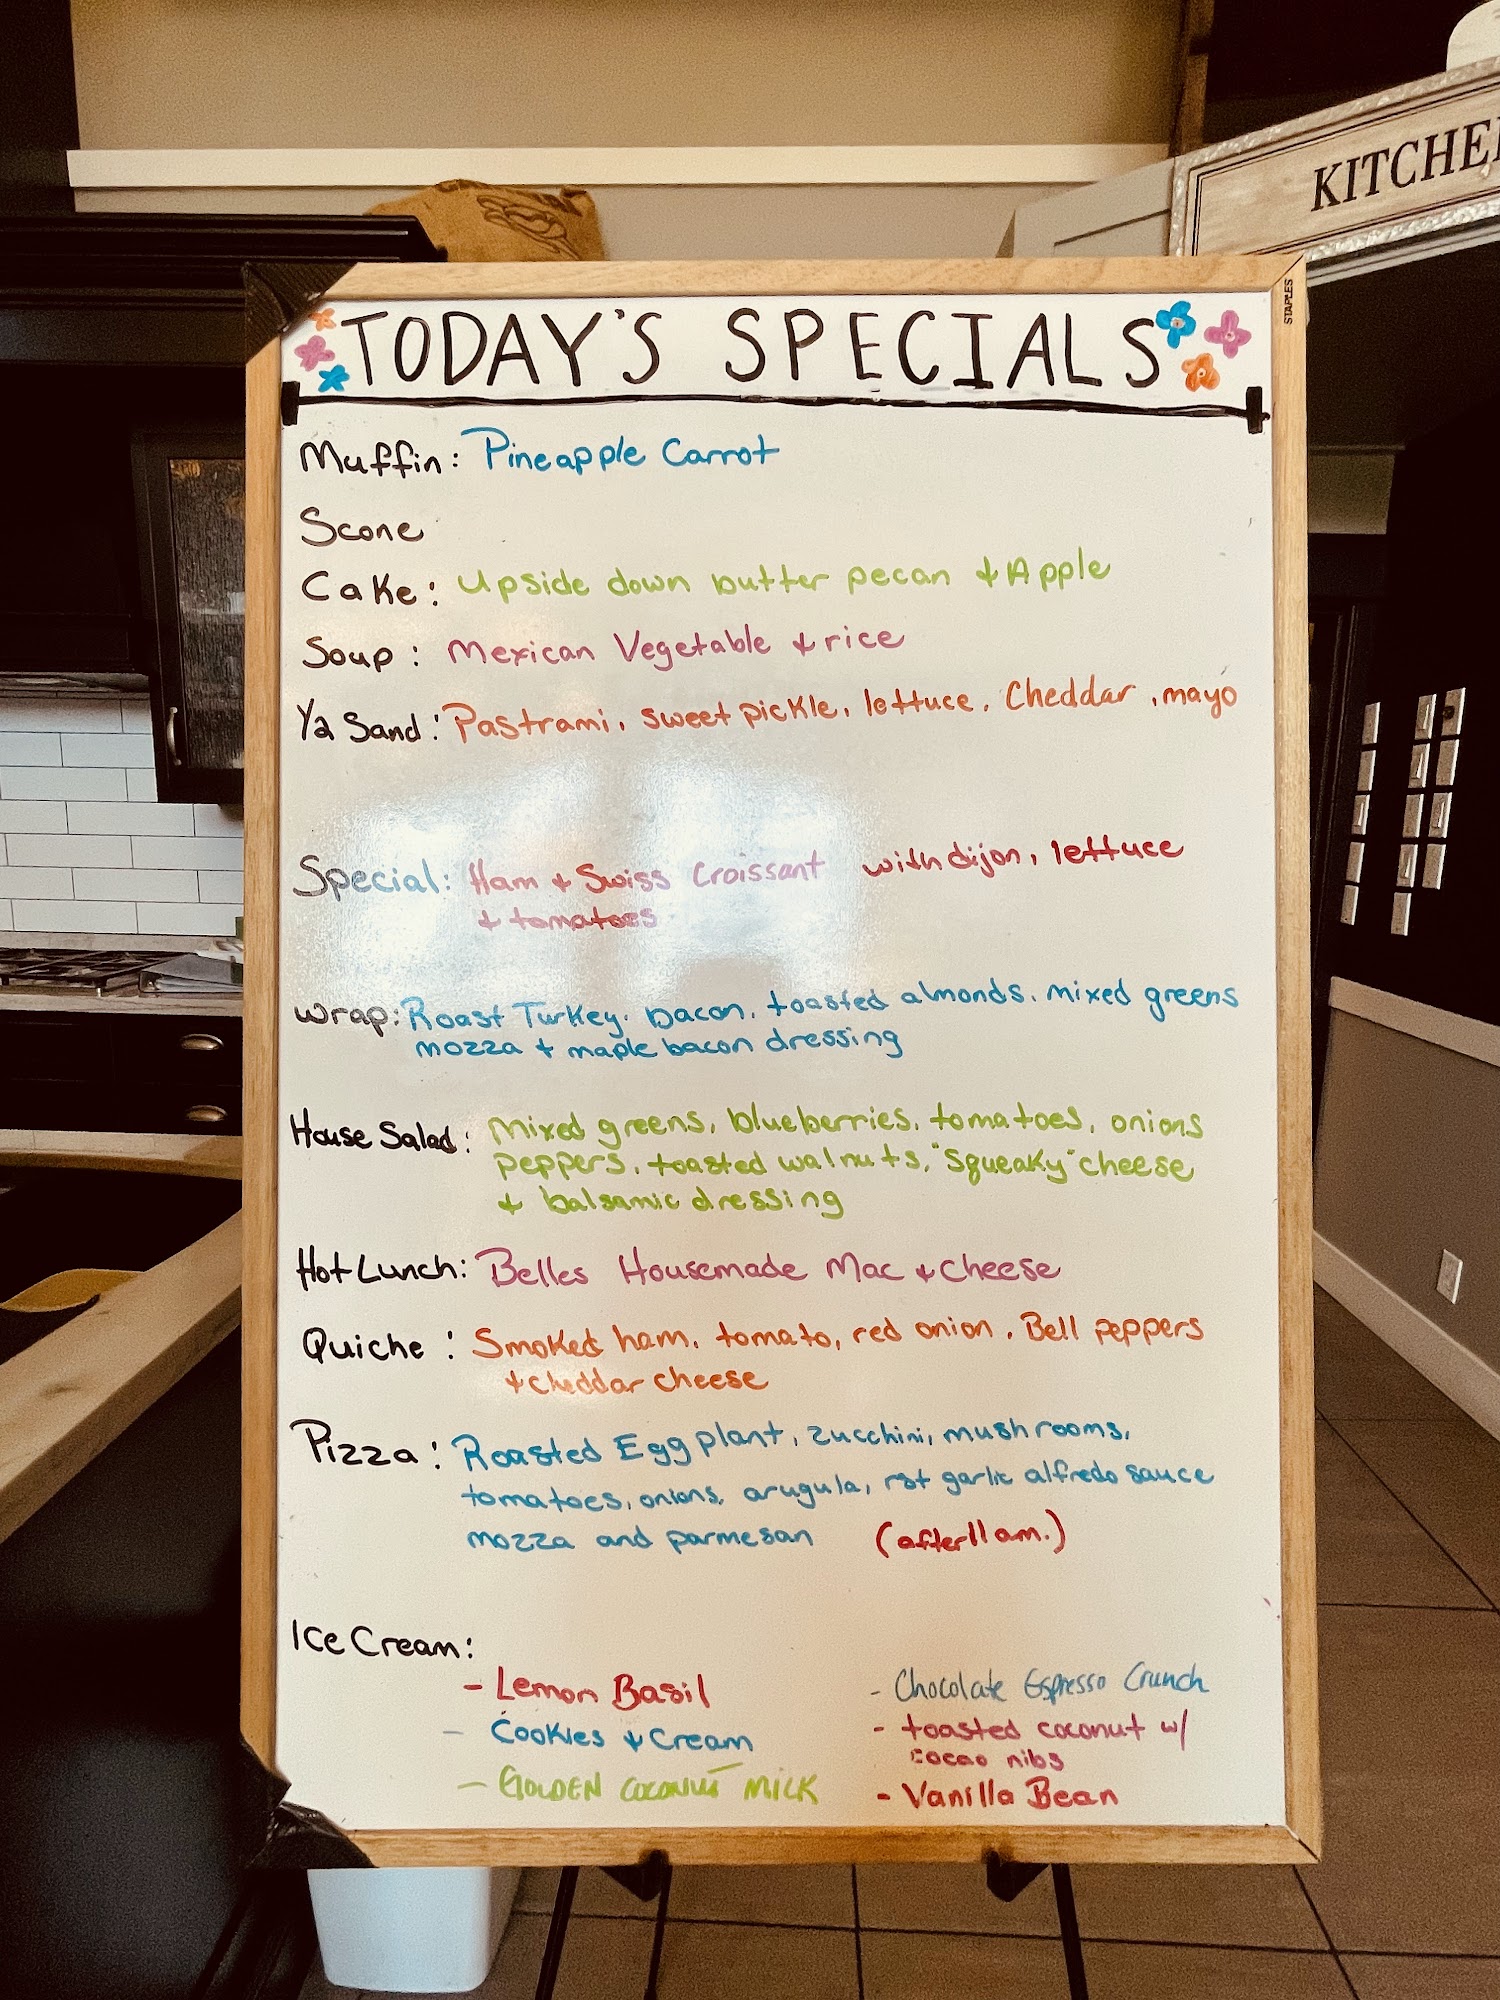 KITCHE
STAPLES
TODAY'S SPECIALS
Muffin: Pineapple Carrot
Scone
Cake: Upside down butter pecan & Apple
Soup: Mexican Vegetable & rice
Ya Sand: Pastrami, sweet pickle, lettuce, Cheddar, mayo
Special: Ham & Swiss Croissant with dijon, lettuce
& tomatoes
Wrap: Roast Turkey, bacon, toasted almonds, mixed greens
mozza & maple bacon dressing
House Salad: Mixed greens, blueberries, tomatoes, onions
peppers, toasted walnuts, "Squeaky" cheese
& balsamic dressing
Hot Lunch: Belles Housemade Mac & cheese
Quiche: Smoked ham, tomato, red onion, Bell peppers
& cheddar cheese
Pizza: Roasted Eggplant, zucchini, mushrooms,
tomatoes, onions, arugula, rst garlic alfredo sauce
mozza and parmesan (after 11 am.)
Ice Cream:
- Lemon Basil
- Cookies & Cream
- GOLDEN COCONUT MILK
- Chocolate Espresso Crunch
- toasted coconut w/
cocao nibs
- Vanilla Bean